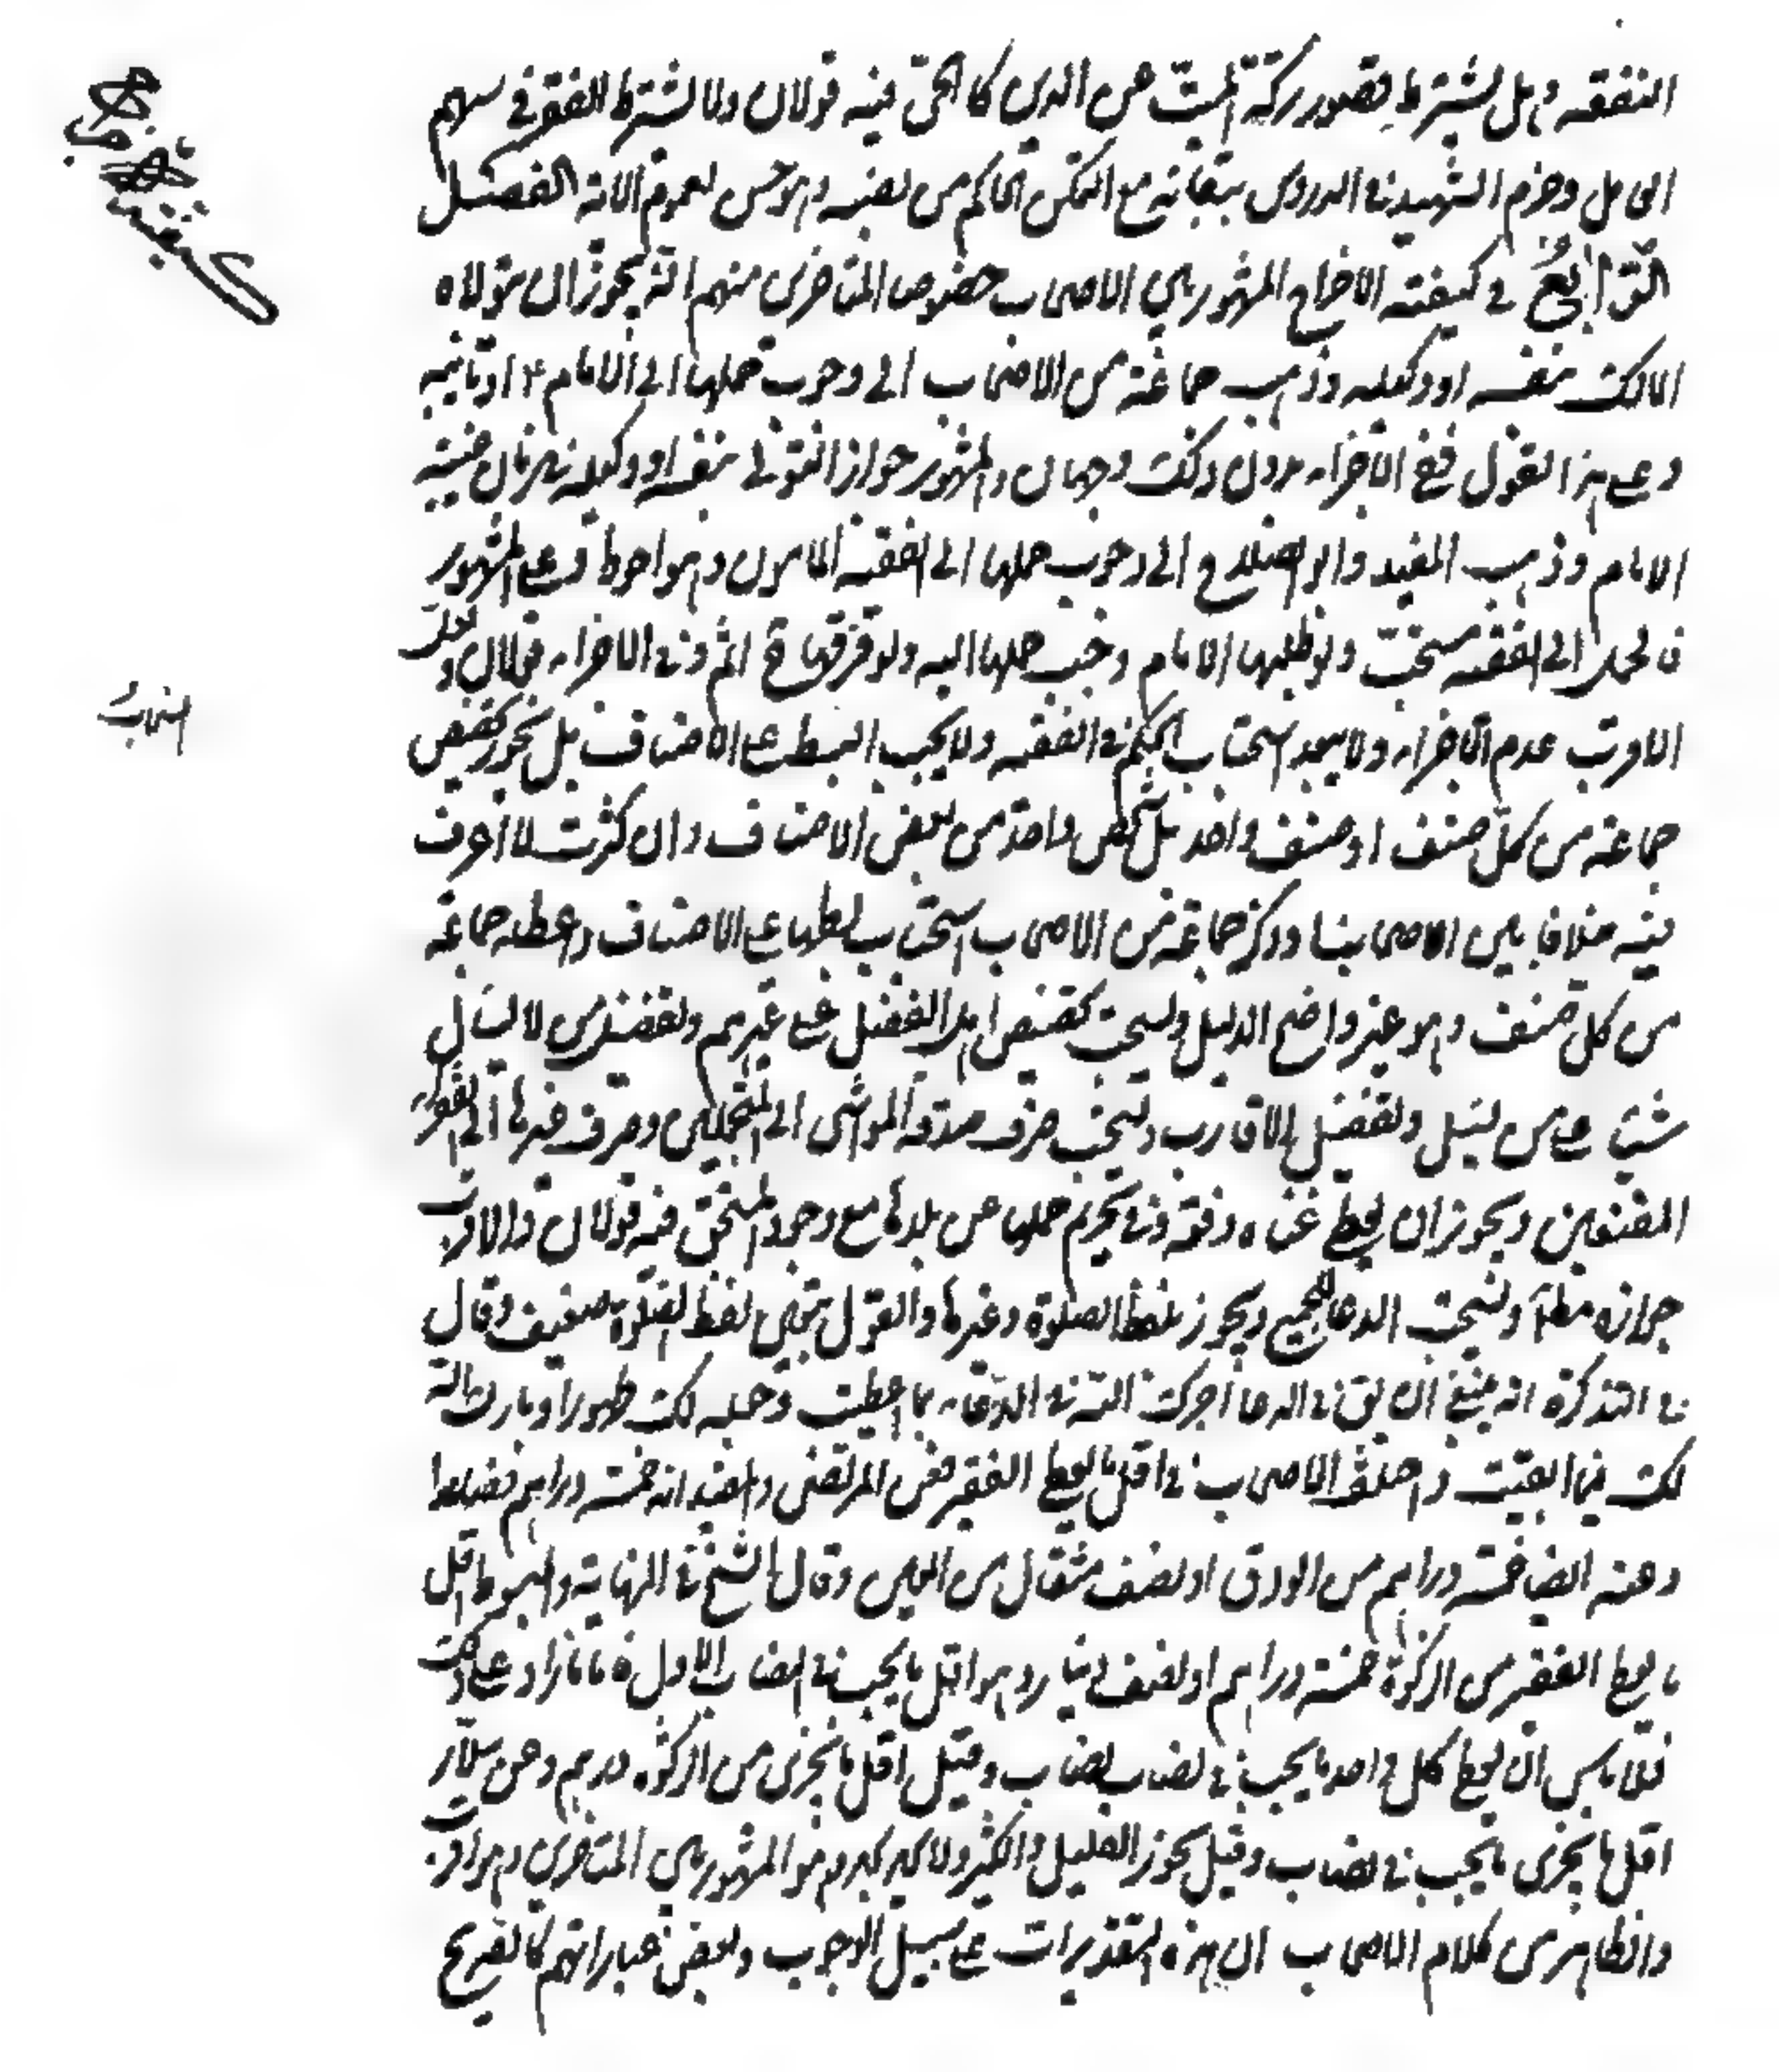 النفقه وهل يشترط قصور تركة الميّت عن الدين كالحىّ فيه قولان ولا يشترط الفقر في سهم
العامل وجزم الشهيد في الدروس مع الحاكم من نصبه وهو حسن لعموم الاية الفصل
الرّابع في كيفية الاخراج المشهور بين الاصحاب خصوصا المتاخرين منهم انّه يجوز ان يتولاه
المالك بنفسه او وكيله وذهب جماعة من الاصحاب الى وجوب حملها الى الامام ع او نائبه
وعلى هذا القول ففي الاجزاء بدون ذلك وجهان والمشهور جواز التولي بنفسه او وكيله في زمان غيبة
الامام وذهب المفيد وابو الصلاح الى وجوب حملها الى الفقيه المامون وهو احوط وعلى المشهور
فالحمل الى الفقيه مستحبّ ولو طلبها الامام وجب حملها اليه ولو فرّقها ح اثم وفي الاجزاء قولان ولعلّ
الاقرب عدم الاجزاء ولا يبعد استحباب الحكم في الفقيه ولا يجب البسط على الاصناف بل يجوز تخصيص
جماعة من كلّ صنف او صنف واحد بل شخص واحد من بعض الاصناف وان كثرت لا اعرف
فيه خلافا بين اصحابنا وذكر جماعة من الاصحاب استحباب بسطها على الاصناف واعطاء جماعة
من كل صنف وهو غير واضح الدليل ويستحب تخصيص اهل الفضل على غيرهم وتفضيل من لا يسأل
شيئا على من يسأل وتفضيل الاقارب ويستحب صرف صدقة المواشى الى المتجملين وصرف غيرها الى الفقراء
المدقعين ويجوز ان يعطى غناه دفعة وفي تحريم حملها عن بلدها مع وجود المستحق فيه قولان والاقرب
جوازه مطلقا ويستحب الدعاء ويجوز بلفظ الصلوة وغيرها والقول بتعين لفظ الصلوة ضعيف وقال
في التذكرة انه ينبغي ان يق في الدعا اجرك الله فيما اعطيت وجعله لك طهورا وبارك الله
لك فيما ابقيت واختلف الاصحاب في اقل ما يعطى الفقير فعن المرتضى والمفيد انه خمسة دراهم فصاعدا
وعنه ايضا خمسة دراهم من الورق او نصف مثقال من العين وقال الشيخ في النهاية والمبسوط اقل
ما يعطى الفقير من الزكوة خمسة دراهم او نصف دينار وهو اقل ما يجب في النصاب الاول فاما ما زاد على ذلك
فلا باس ان يعطى كل واحد ما يجب في نصاب نصاب وقيل اقل ما يجزى من الزكوة درهم وعن سلّار
اقل ما يجزى ما يجب في نصاب وقيل يجوز القليل والكثير ولا يحد بحد وهو المشهور بين المتاخرين وهو اقرب
والظاهر من كلام الاصحاب ان هذه التقديرات على سبيل الوجوب وبعض عباراتهم كالصريح
استحباب